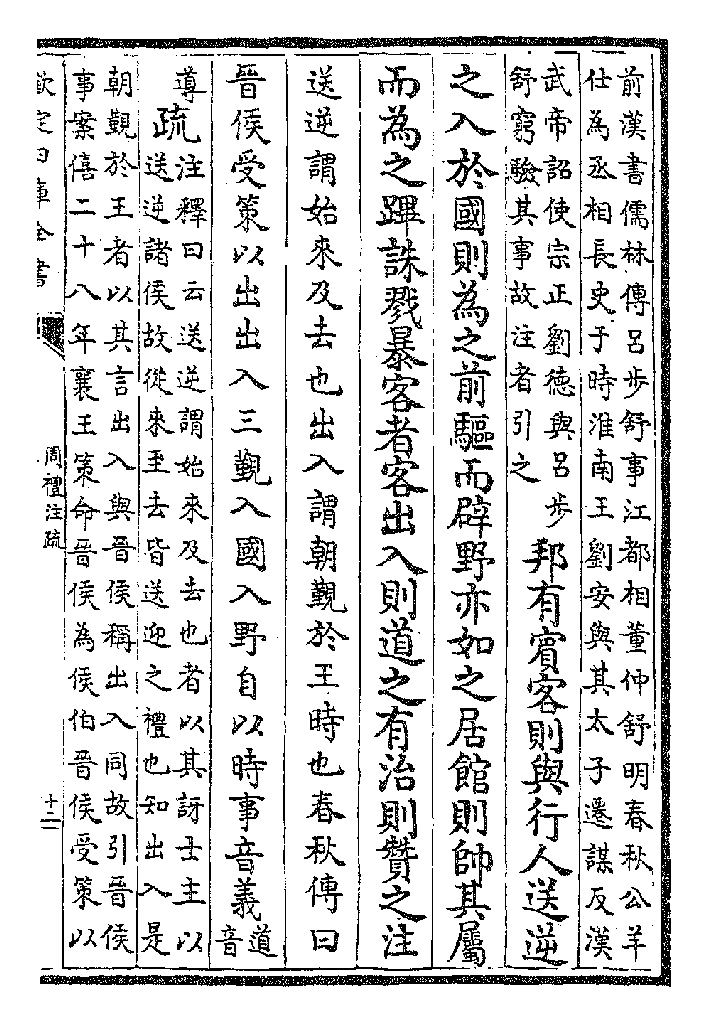 前漢書儒林傳吕歩舒事江都相董仲舒明春秋公羊
仕為丞相長史于時淮南王劉安與其太子遷謀反漢
武帝詔使宗正劉德與吕歩
舒窮驗其事故注者引之
邦有賓客則與行人送逆
之入於國則為之前驅而辟野亦如之居館則帥其屬
而為之蹕誅戮暴客者客出入則道之有治則贊之注
送逆謂始來及去也出入謂朝覲於王時也春秋傳曰
晉侯受策以出出入三覲入國入野自以時事音義道音
導疏注釋曰云送逆謂始來及去也者以其訝士主以
送逆諸侯故從來至去皆送迎之禮也知出入是
朝覲於王者以其言出入與晉侯稱出入同故引晉侯
事案僖二十八年襄王策命晉侯為侯伯晉侯受策以
欽定四庫全書
周禮注疏
十二